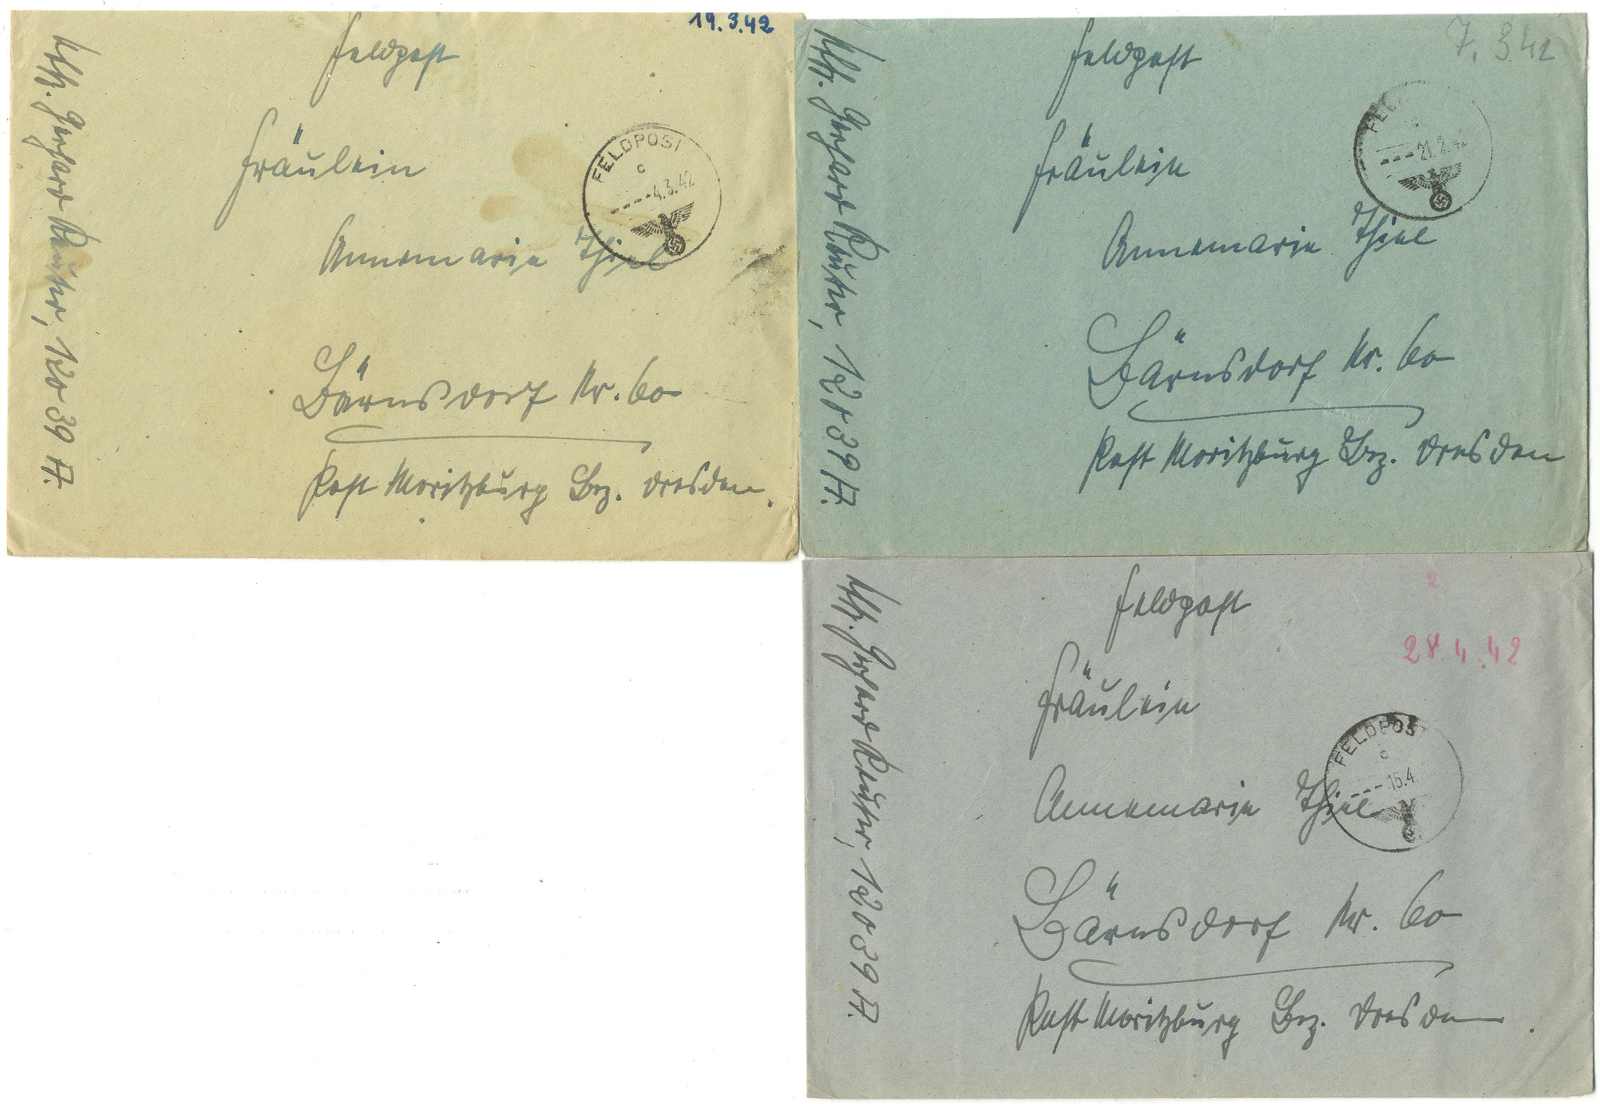 19.3.42
Feldpost
Fräulein
FELDPOST
c
4.3.42
Annemarie Thiel
Bärnsdorf Nr. 60
Post Moritzburg Bez. Dresden.
Gerhard 12039 A.
7.3.42
Feldpost
Fräulein
21.2.42
Annemarie Thiel
Bärnsdorf Nr. 60
Post Moritzburg Bez. Dresden
Gerhard 12039 A.
2
28.4.42
Feldpost
Fräulein
FELDPOST
c
15.4.
Annemarie Thiel
Bärnsdorf Nr. 60
Post Moritzburg Bez. Dresden.
Gerhard 12039 A.